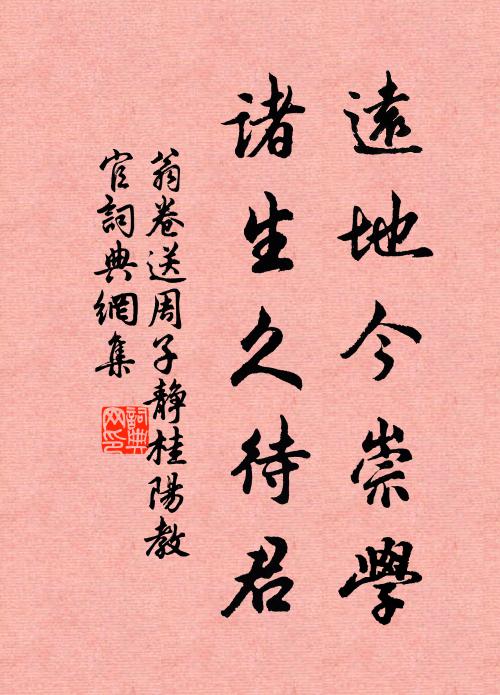 遠地今崇學
諸生久待君
翁卷送周子靜桂陽教
官詞典網集
詞典
网印